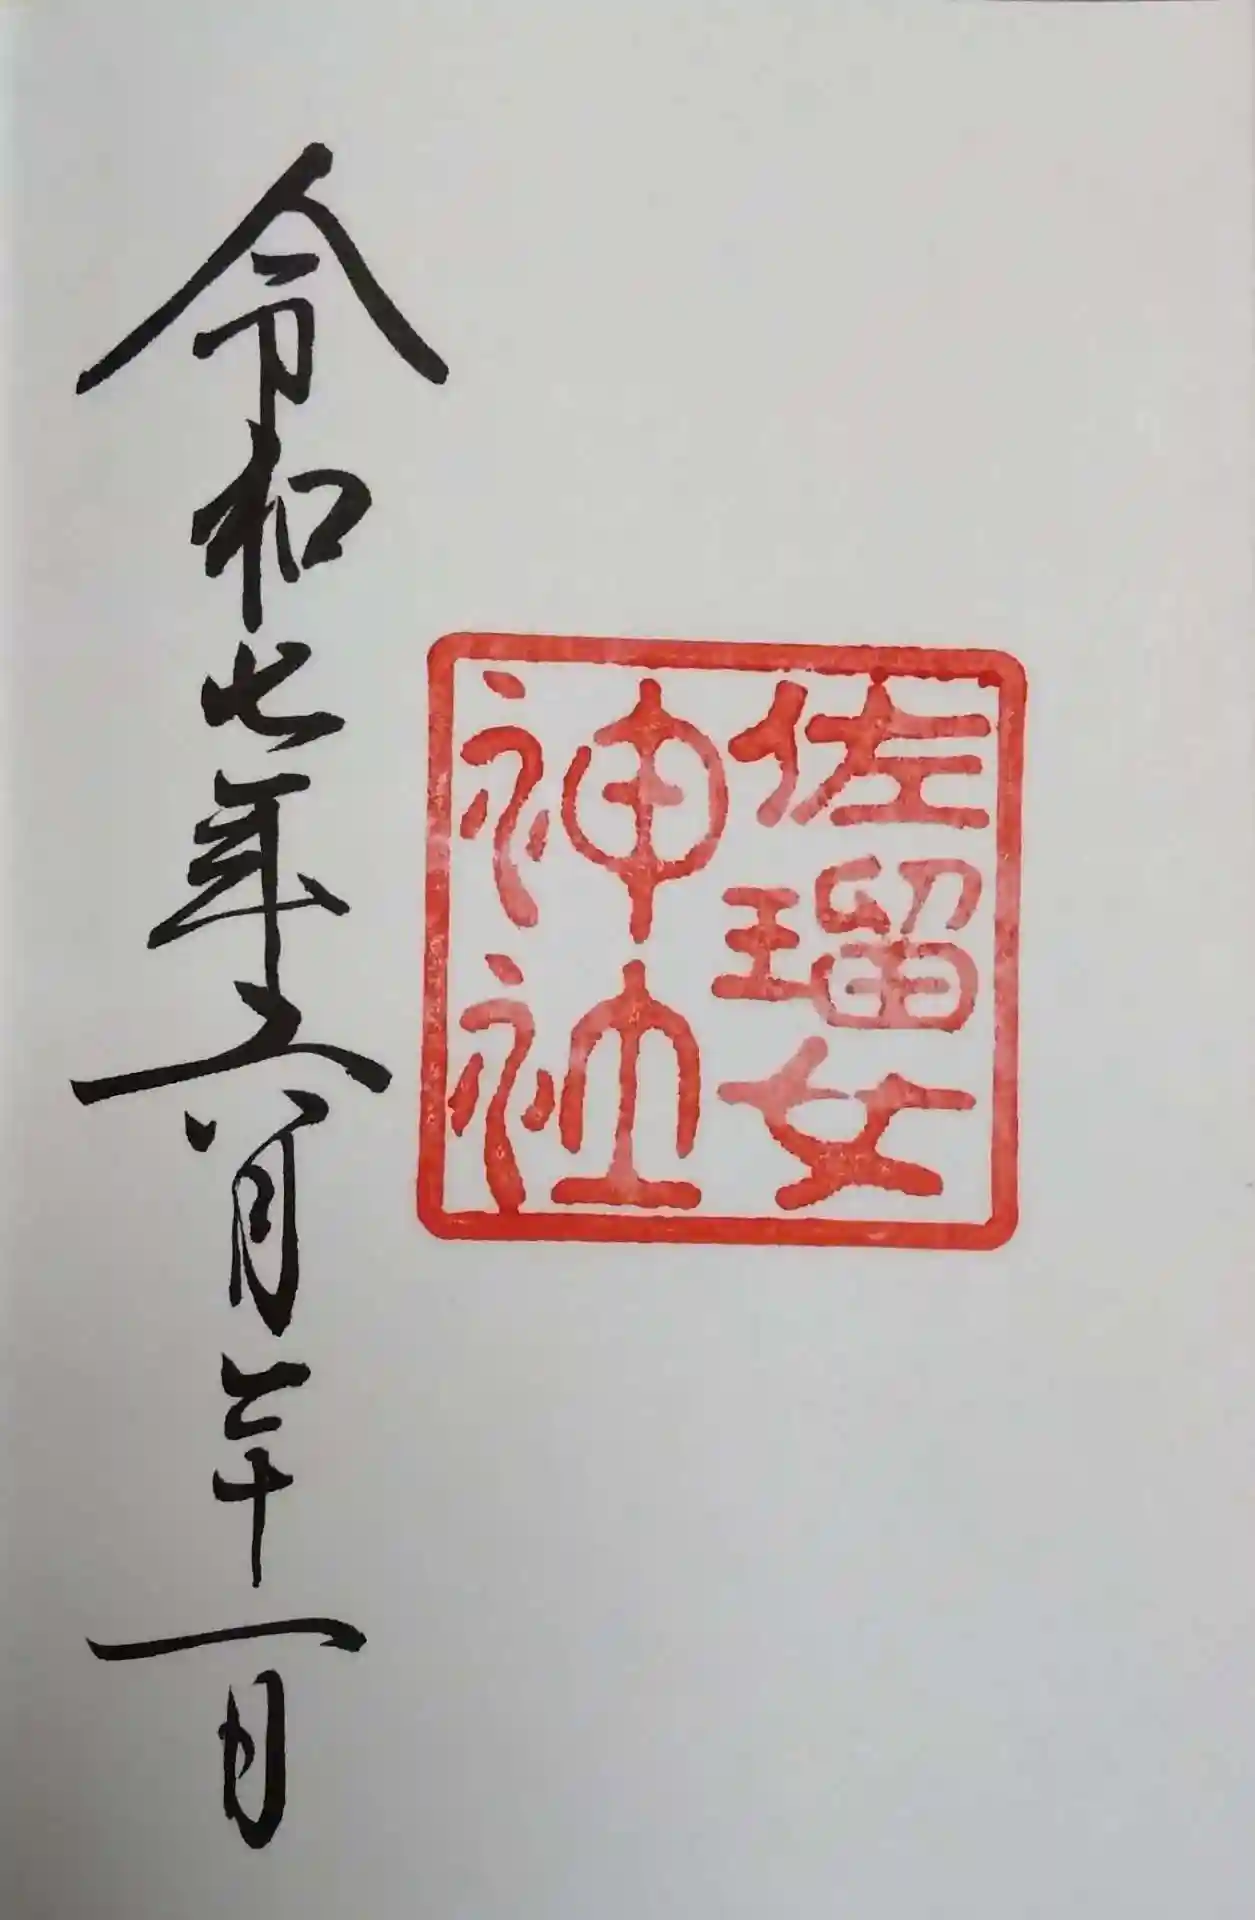 佐瑠女
神社
令和七年六月二十一日